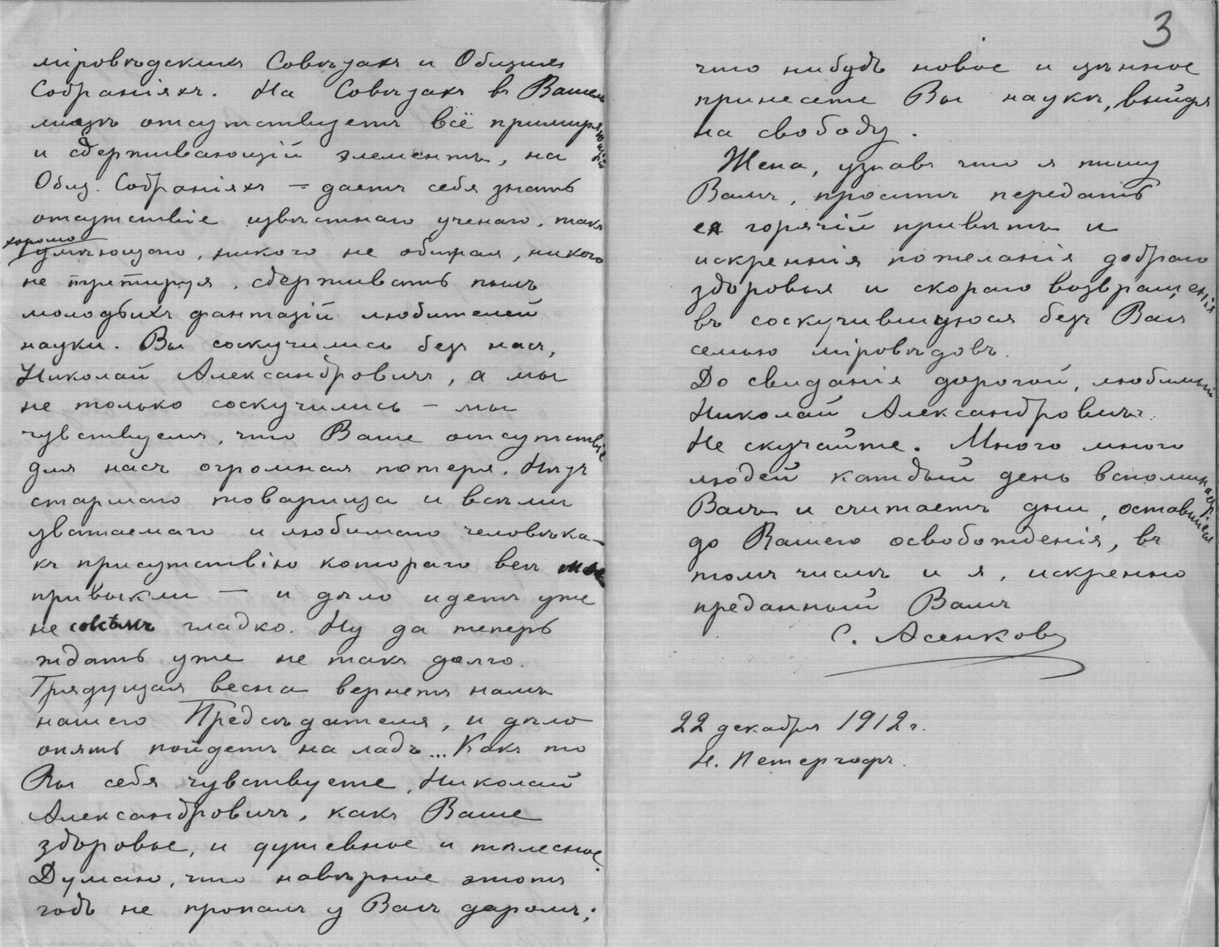 міровѣдскихъ Совѣтахъ и Общихъ
Собраніяхъ. На Совѣтахъ въ Вашемъ
лицѣ отсутствуетъ всё примиряющій
и сдерживающій элементъ, на
Общ. Собраніяхъ – даетъ себя знать
отсутствіе извѣстнаго ученаго, такъ
хорошо
умѣющаго, никого не обижая, никого
не третируя, сдерживать пылъ
молодыхъ фантазій любителей
науки. Вы соскучились безъ насъ,
Николай Александровичъ, а мы
не только соскучились – мы
чувствуемъ, что Ваше отсутствіе
для насъ огромная потеря. Нѣтъ
старшаго товарища и всѣми
уважаемаго и любимаго человѣка
къ присутствію котораго всѣ мы
привыкли — и дѣло идетъ уже
не совсѣмъ гладко. Ну да теперь
ждать уже не такъ долго.
Грядущая весна вернетъ намъ
нашего Предсѣдателя, и дѣло
опять пойдетъ на ладъ... Какъ то
Вы себя чувствуете, Николай
Александровичъ, какъ Ваше
здоровье, и душевное и тѣлесное?
Думаю, что навѣрное этотъ
годъ не пропалъ у Васъ даромъ;
3
что нибудь новое и цѣнное
принесете Вы наукѣ, выйдя
на свободу.
Жена, узнавъ что я пишу
Вамъ, проситъ передать
ея горячій привѣтъ и
искреннія пожеланія добраго
здоровья и скораго возвращенія
въ соскучившуюся безъ Васъ
семью міровѣдовъ.
До свиданія дорогой, любимый
Николай Александровичъ.
Не скучайте. Много много
людей каждый день вспоминаютъ
Васъ и считаетъ дни, оставшіеся
до Вашего освобожденія, въ
томъ числѣ и я, искренно
преданный Вамъ
С. Асенковъ
22 декабря 1912 г.
Н. Петергофъ.